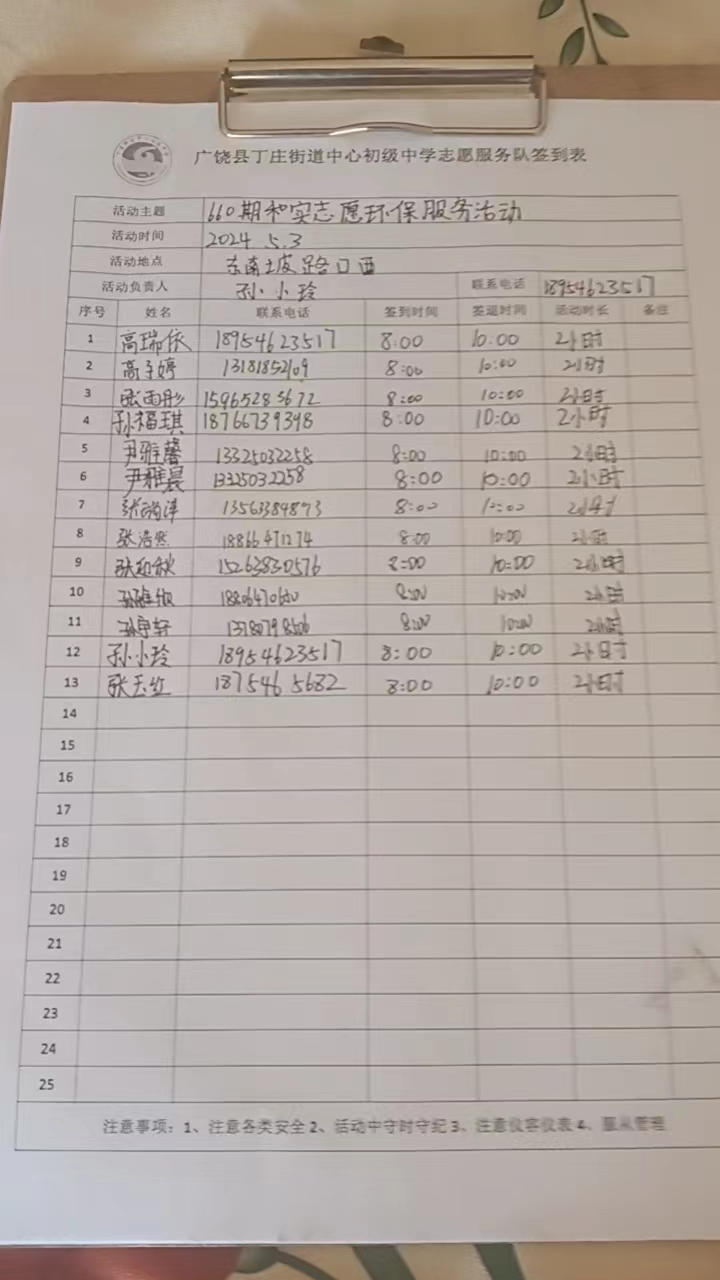 广饶县丁庄街道中心初级中学志愿服务队签到表
活动主题 660期和实志愿环保服务活动
活动时间 2024 5.3
活动地点 东南坡路口西
活动负责人 孙小玲 联系电话 18954623517
序号 姓名 联系电话 签到时间 签退时间 活动时长 备注
1 高瑞依 18954623517 8:00 10:00 2小时
2 高子婷 13181852109 8:00 10:00 2小时
3 张雨彤 15965285672 8:00 10:00 2小时
4 孙福琪 18766739398 8:00 10:00 2小时
5 尹雅馨 13325032258 8:00 10:00 2小时
6 尹雅晨 13325032258 8:00 10:00 2小时
7 13563384873 8:00 10:00 2小时
8 张浩然 18866471274 8:00 10:00 2小时
9 15263830576 8:00 10:00 2小时
10 8:00 10:00 2小时
11 8:00 10:00 2小时
12 孙小玲 18954623517 8:00 10:00 2小时
13 张玉红 187546 5682 8:00 10:00 2小时
14
15
16
17
18
19
20
21
22
23
24
25
注意事项：1、注意各类安全 2、活动中守时守纪 3、注意仪容仪表 4、服从管理